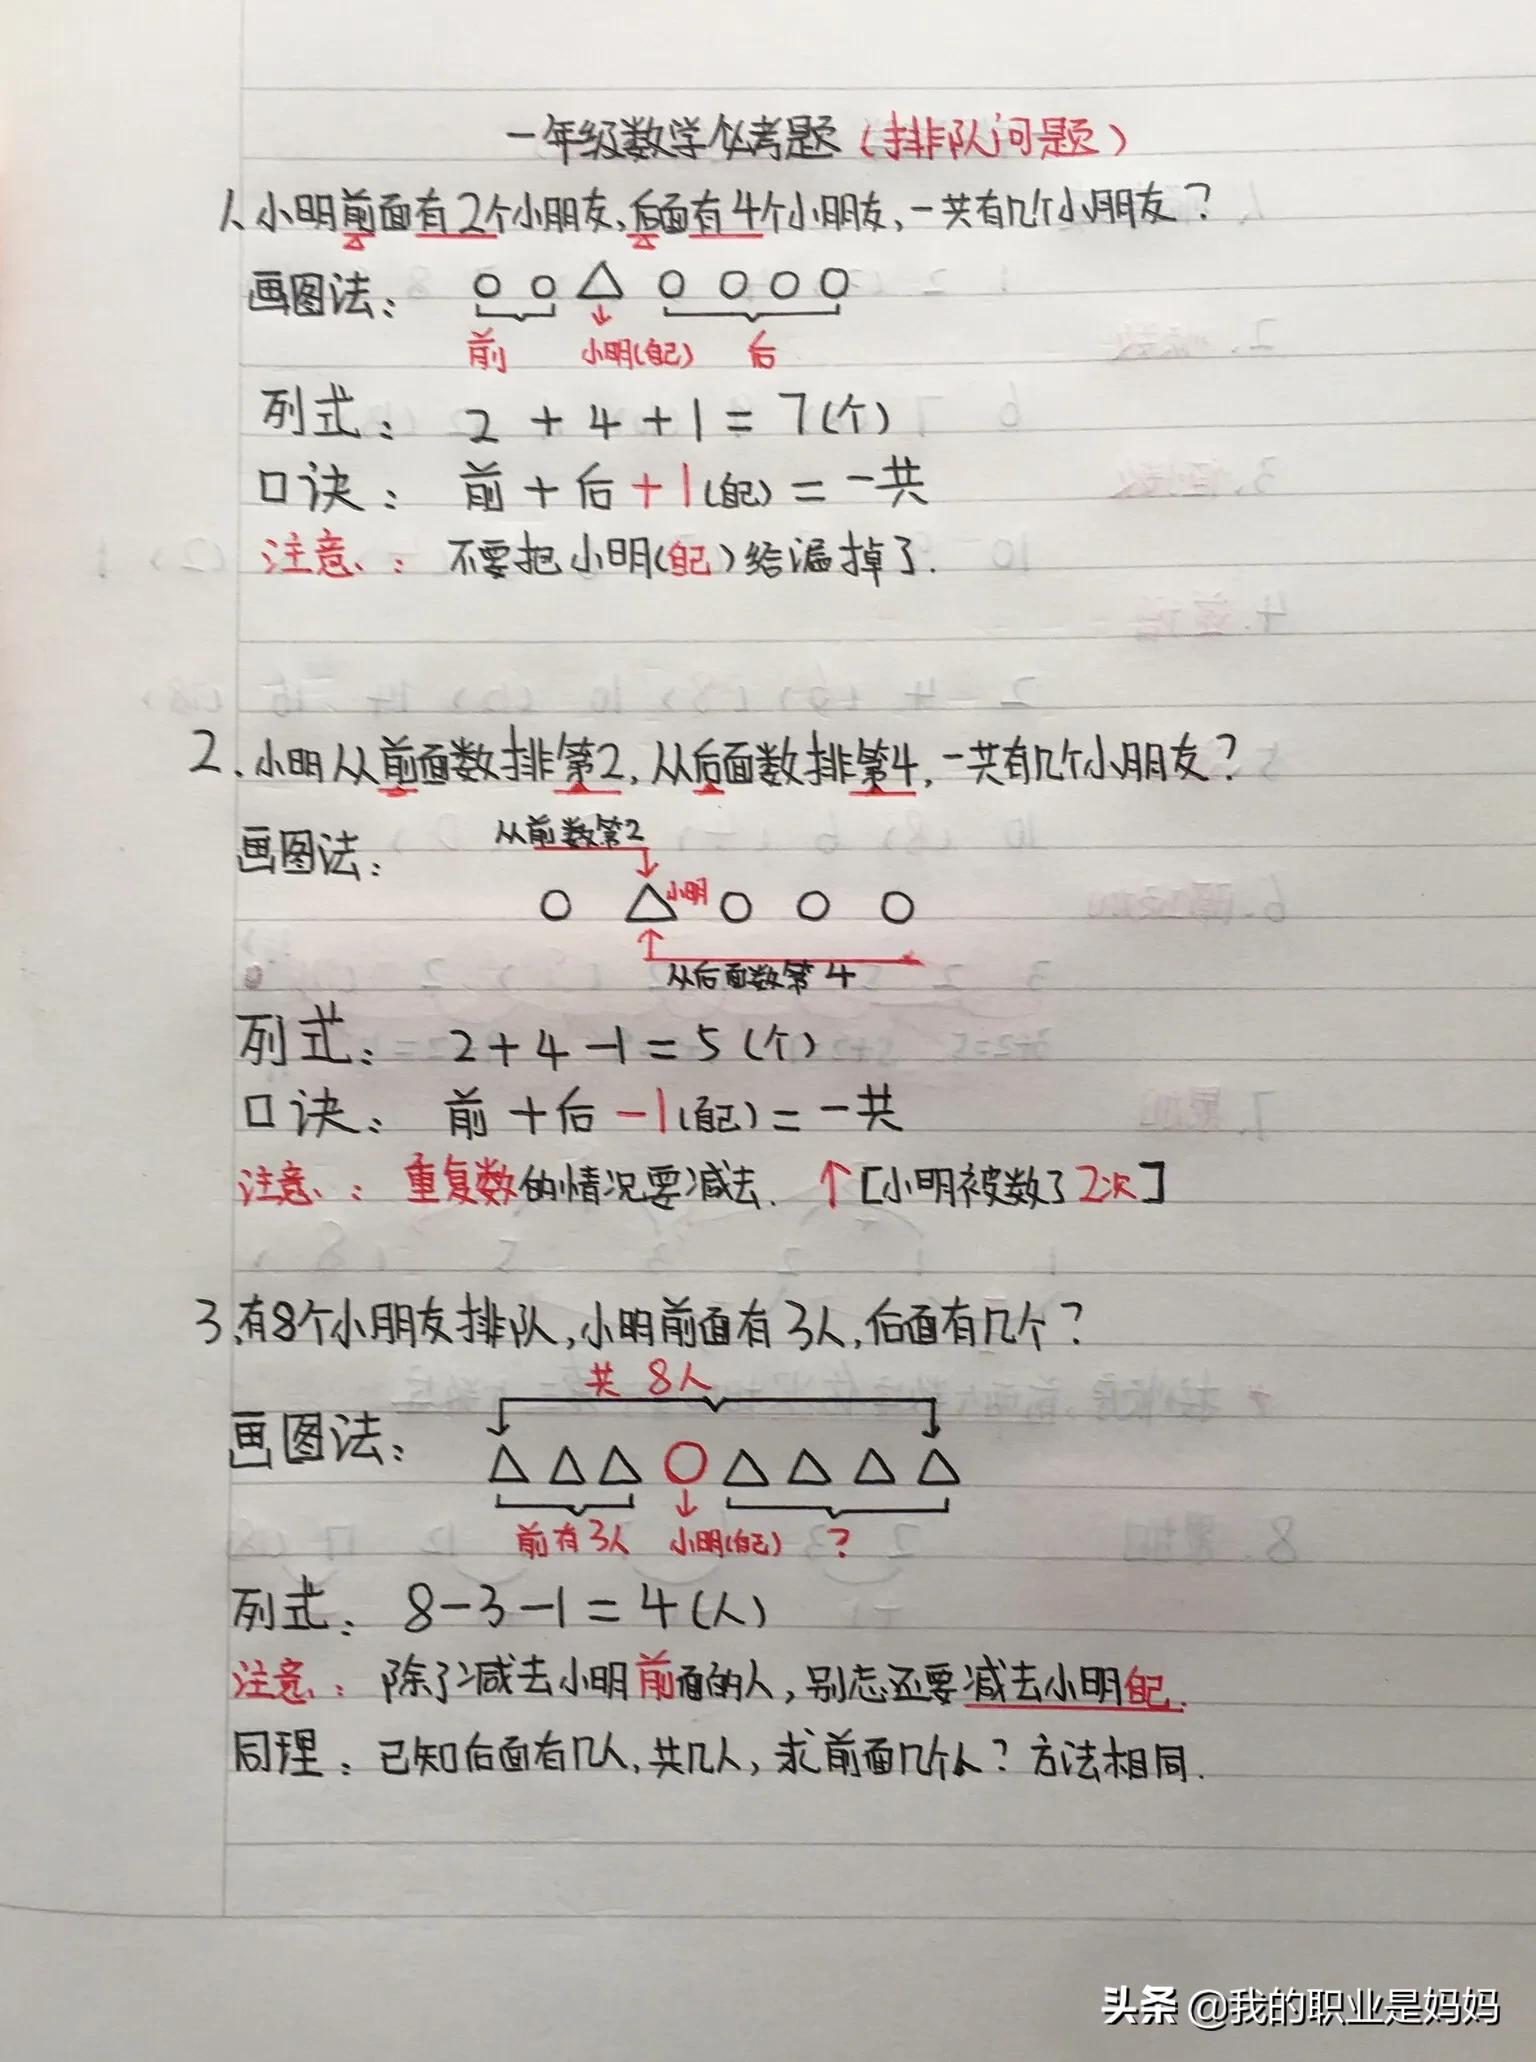 一年级数学必考题（排队问题）
1、小明前面有2个小朋友，后面有4个小朋友，一共有几个小朋友？
画图法：
前 小明(自己) 后
列式： 2 + 4 + 1 = 7(个)
口诀： 前 + 后 + 1(自己) = 一共
注意： 不要把小明(自己)给漏掉了.
2、小明从前面数排第2，从后面数排第4，一共有几个小朋友？
从前数第2
画图法：
小明
从后面数第4
列式： 2 + 4 - 1 = 5 (个)
口诀： 前 + 后 - 1(自己) = 一共
注意： 重复数的情况要减去. ↑ [小明被数了2次]
3、有8个小朋友排队，小明前面有3人，后面有几个？
共 8人
画图法：
前有3人 小明(自己) ？
列式： 8 - 3 - 1 = 4 (人)
注意： 除了减去小明前面的人，别忘还要减去小明自己.
同理： 已知后面有几人，共几人，求前面几个人？方法相同.
头条 @我的职业是妈妈